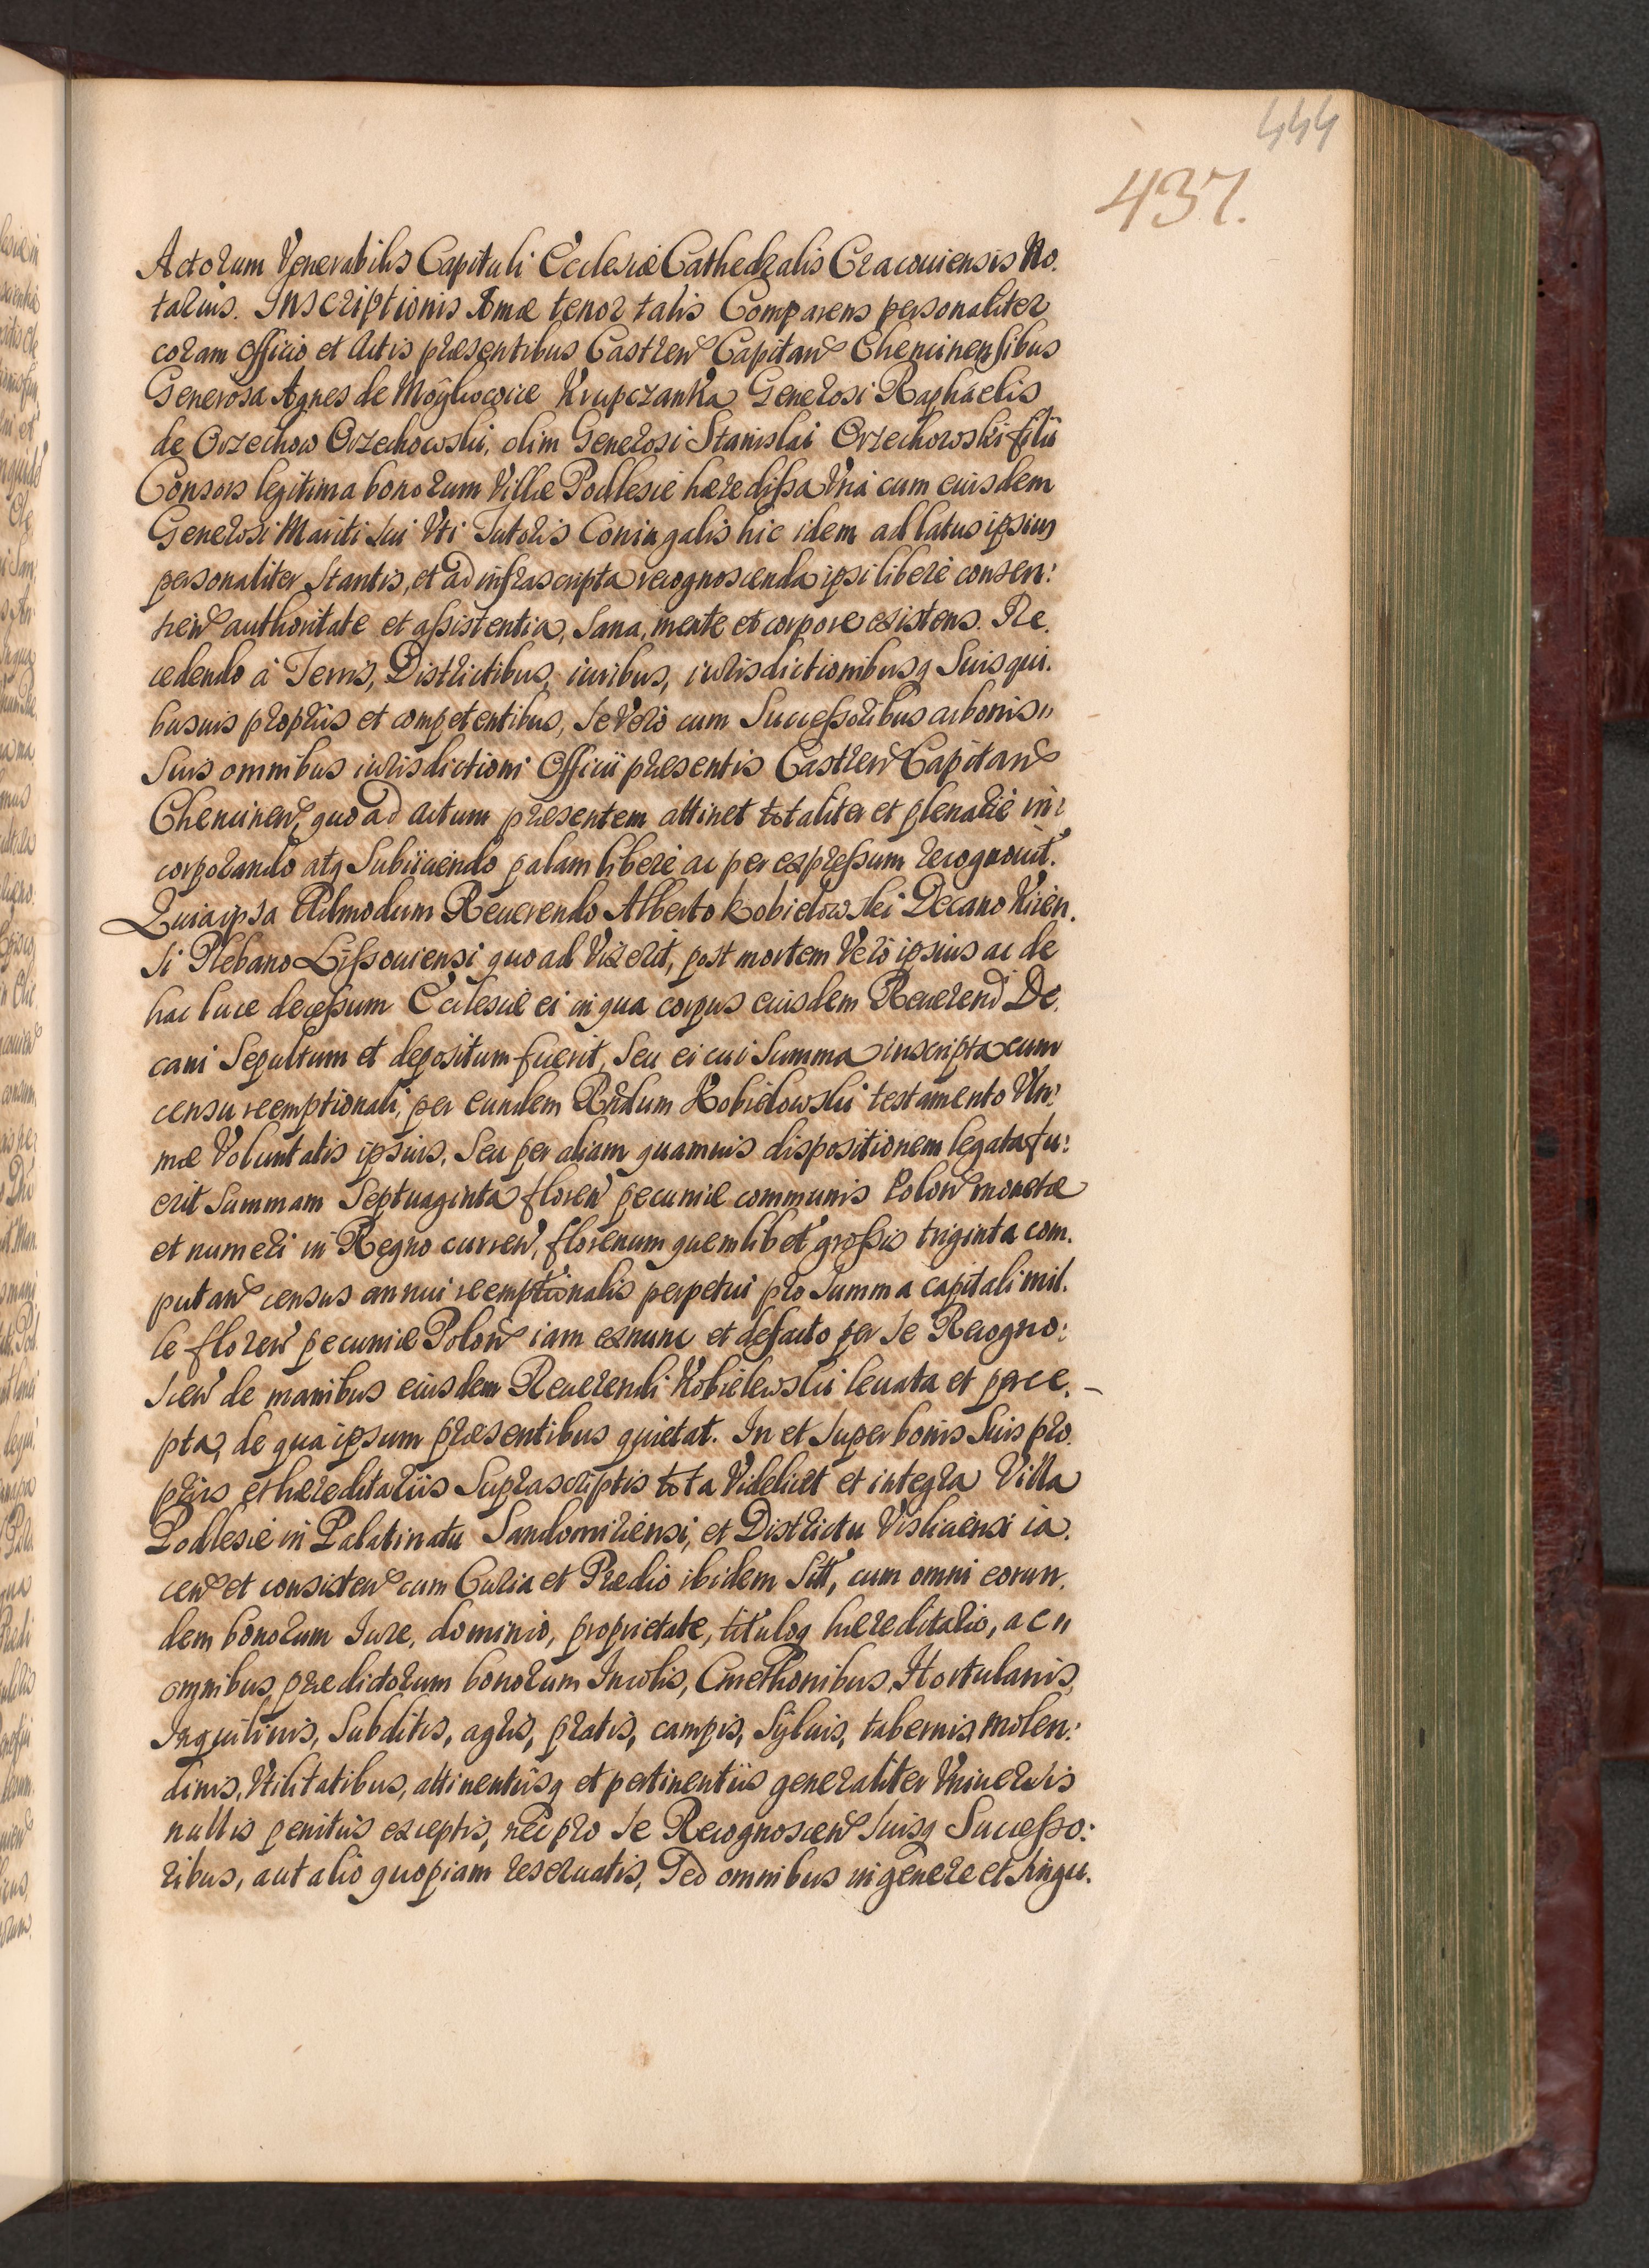 444
437.
Actorum Venerabilis Capituli Ecclesiæ Cathedralis Cracouiensis No.
tarius. Inscriptionis tenor talis Comparens personaliter
coram Officio et Actis præsentibus Castren Capitan Chencinensibus
Generosa Agnes de Krupczanka Generosi Raphaelis
de Orzechow Orzechowski, olim Generosi Stanislai Orzechowski filii
Consors legitima bonorum Villæ Podlesie hæredissa Vna cum eiusdem
Generosi Mariti sui Vti Tutoris Coniugalis hic idem ad latus ipsius
personaliter Stantis, et ad infrascripta recognoscenda ipsi liberè consen:
tien authoritate et assistentia, Sana, mente et corpore existens. Re.
cedendo à Terris, Districtibus, iuribus, iurisdictionibusq Suis qui.
busuis proprijs et competentibus, se Verò cum Successoribus ac bonis
Suis omnibus iurisdictioni Officii præsentis Castren Capitan
Chencinen, quo ad actum præsentem attinet totaliter et plenariè in:
corporando atq Subijciendo palam liberè ac per expressum recognouit.
Quia ipsa Admodum Reuerendo Alberto Kobielowski Decano Kijen.
si Plebano Lissouiensi quo ad Vixerit, post mortem Verò ipsius ac de
hac luce decessum Ecclesiæ ei in qua corpus eiusdem Reuerend De.
cani Sepultum et depositum fuerit, Seu ei cui Summa inscripta cum
censu reemptionali, per eundem Rndum Kobielowski testamento Vlti:
mæ Voluntatis ipsius, Seu per aliam quamuis dispositionem legata fu:
erit Summam Septuaginta floren pecuniæ communis Polon monetæ
et numeri in Regno curren, florenum quemlibet grossis triginta com.
putan census annui reemptionalis perpetui pro Summa capitali mil.
le floren pecuniæ Polon iam exnunc et defacto per se Recogno:
scen de manibus eiusdem Reuerendi Kobielewski leuata et perce.
pta, de qua ipsum præsentibus quietat. In et super bonis Suis pro.
prijs et hæreditarijs Suprascriptis tota Videlicet et integra Villa
Podlesie in Palatinatu Sandomiriensi, et Districtu Visliciensi ia.
cen et consisten cum Curia et Prædio ibidem Sitt, cum omni eorun.
dem bonorum Iure, dominio, proprietate, tituloq hæreditario, ac
omnibus prædictorum bonorum Incolis, Cmethonibus, Hortulanis,
Inquilinis, Subditis, agris, pratis, campis, Syluis, tabernis, molen:
dinis, Vtilitatibus, attinentijsq et pertinentijs generaliter Vniuersis
nullis penitus exceptis, nec pro se Recognoscen suisq Successo:
ribus, aut alio quopiam reseruatis, Sed omnibus in genere et singu.